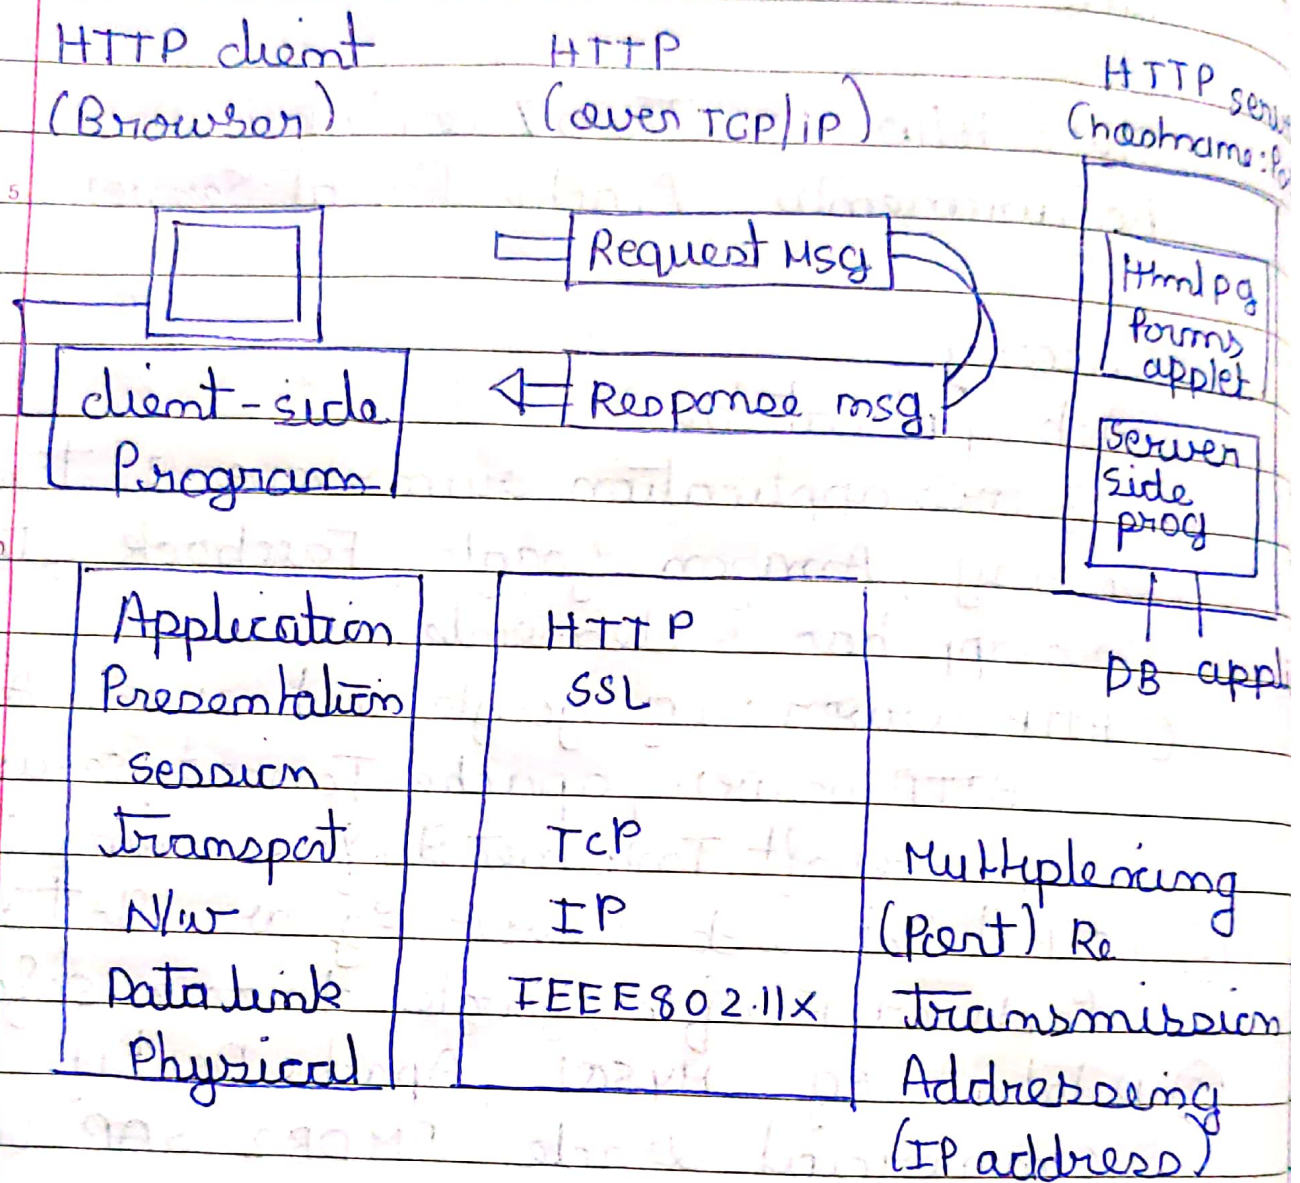 HTTP client
(Browser)
HTTP
(over TCP/IP)
HTTP
(hostname:
Request Msg
Response msg.
client-side
Program
Html pg
forms
applet
server
side
prog
DB appli
Application HTTP
Presentation SSL
Session
Transport TCP
N/w IP
Data link IEEE 802.11x
Physical
Multiplexing
(Port) Re
transmission
Addressing
(IP address)
5